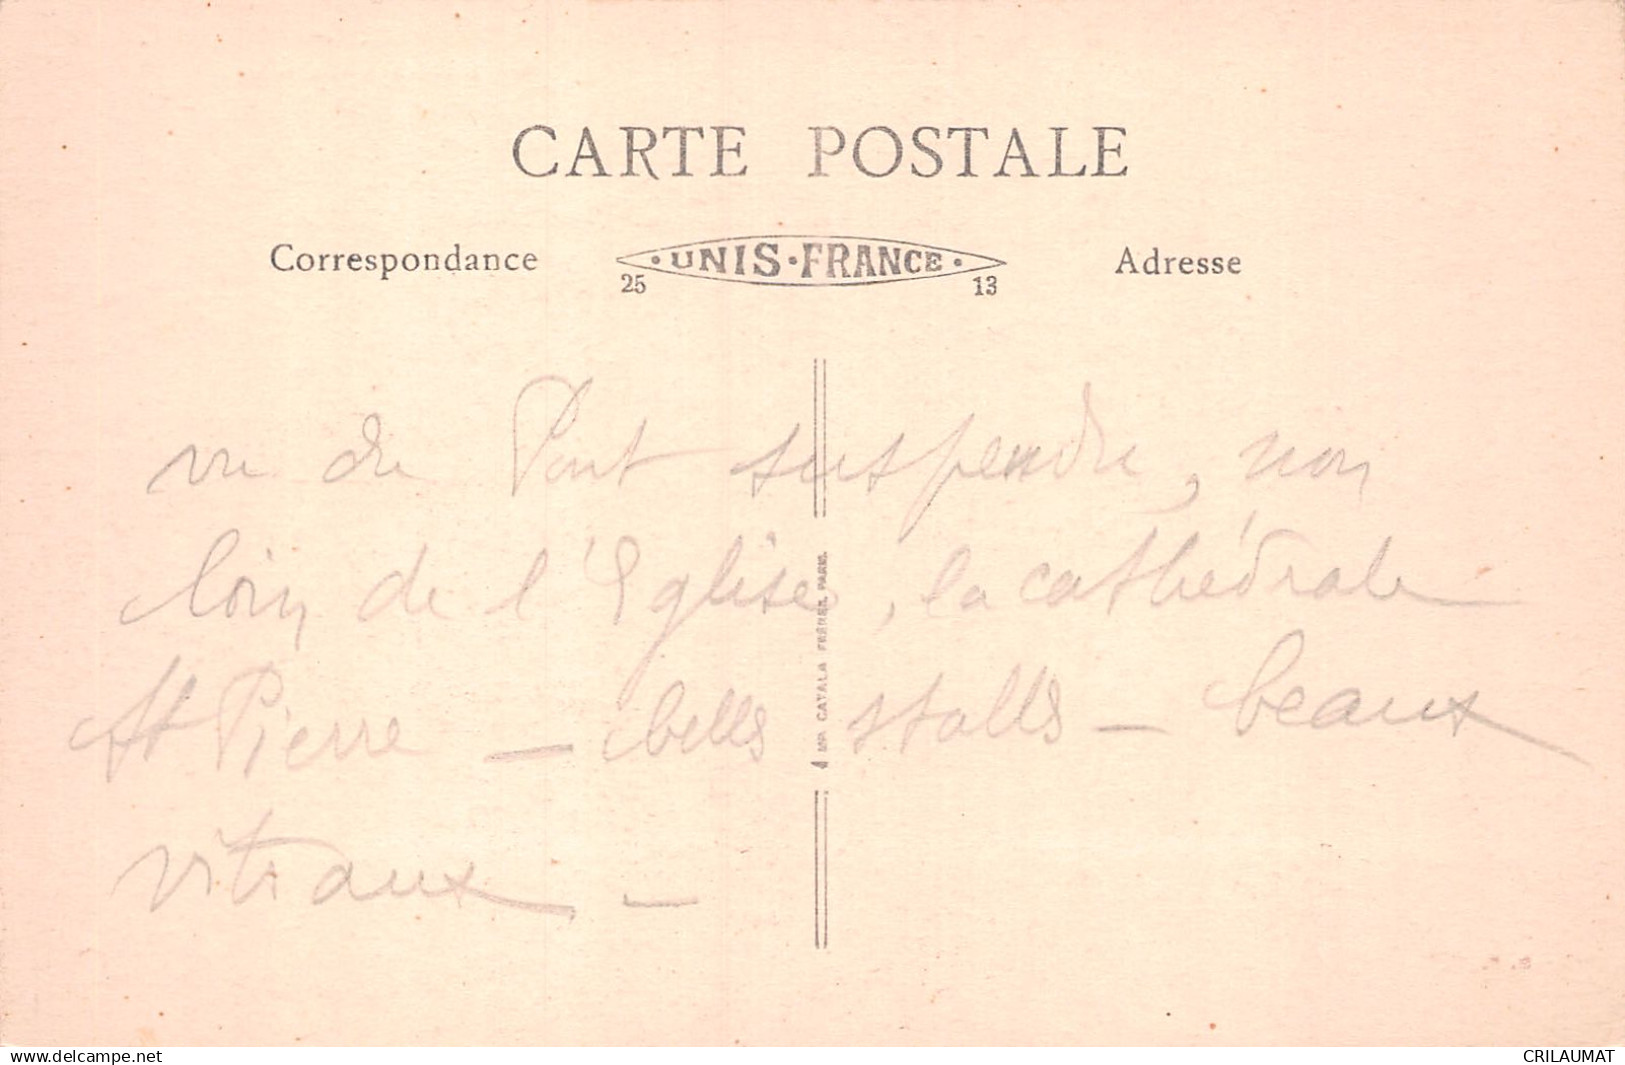 CARTE POSTALE
Correspondance
·UNIS·FRANCE·
25 13
Adresse
vu du Pont suspendu, non
loin de l'Eglise, la cathédrale
St Pierre — belles stalles — beaux
vitraux —
IMP. CATALA FRÈRES, PARIS.
www.delcampe.net
CRILAUMAT